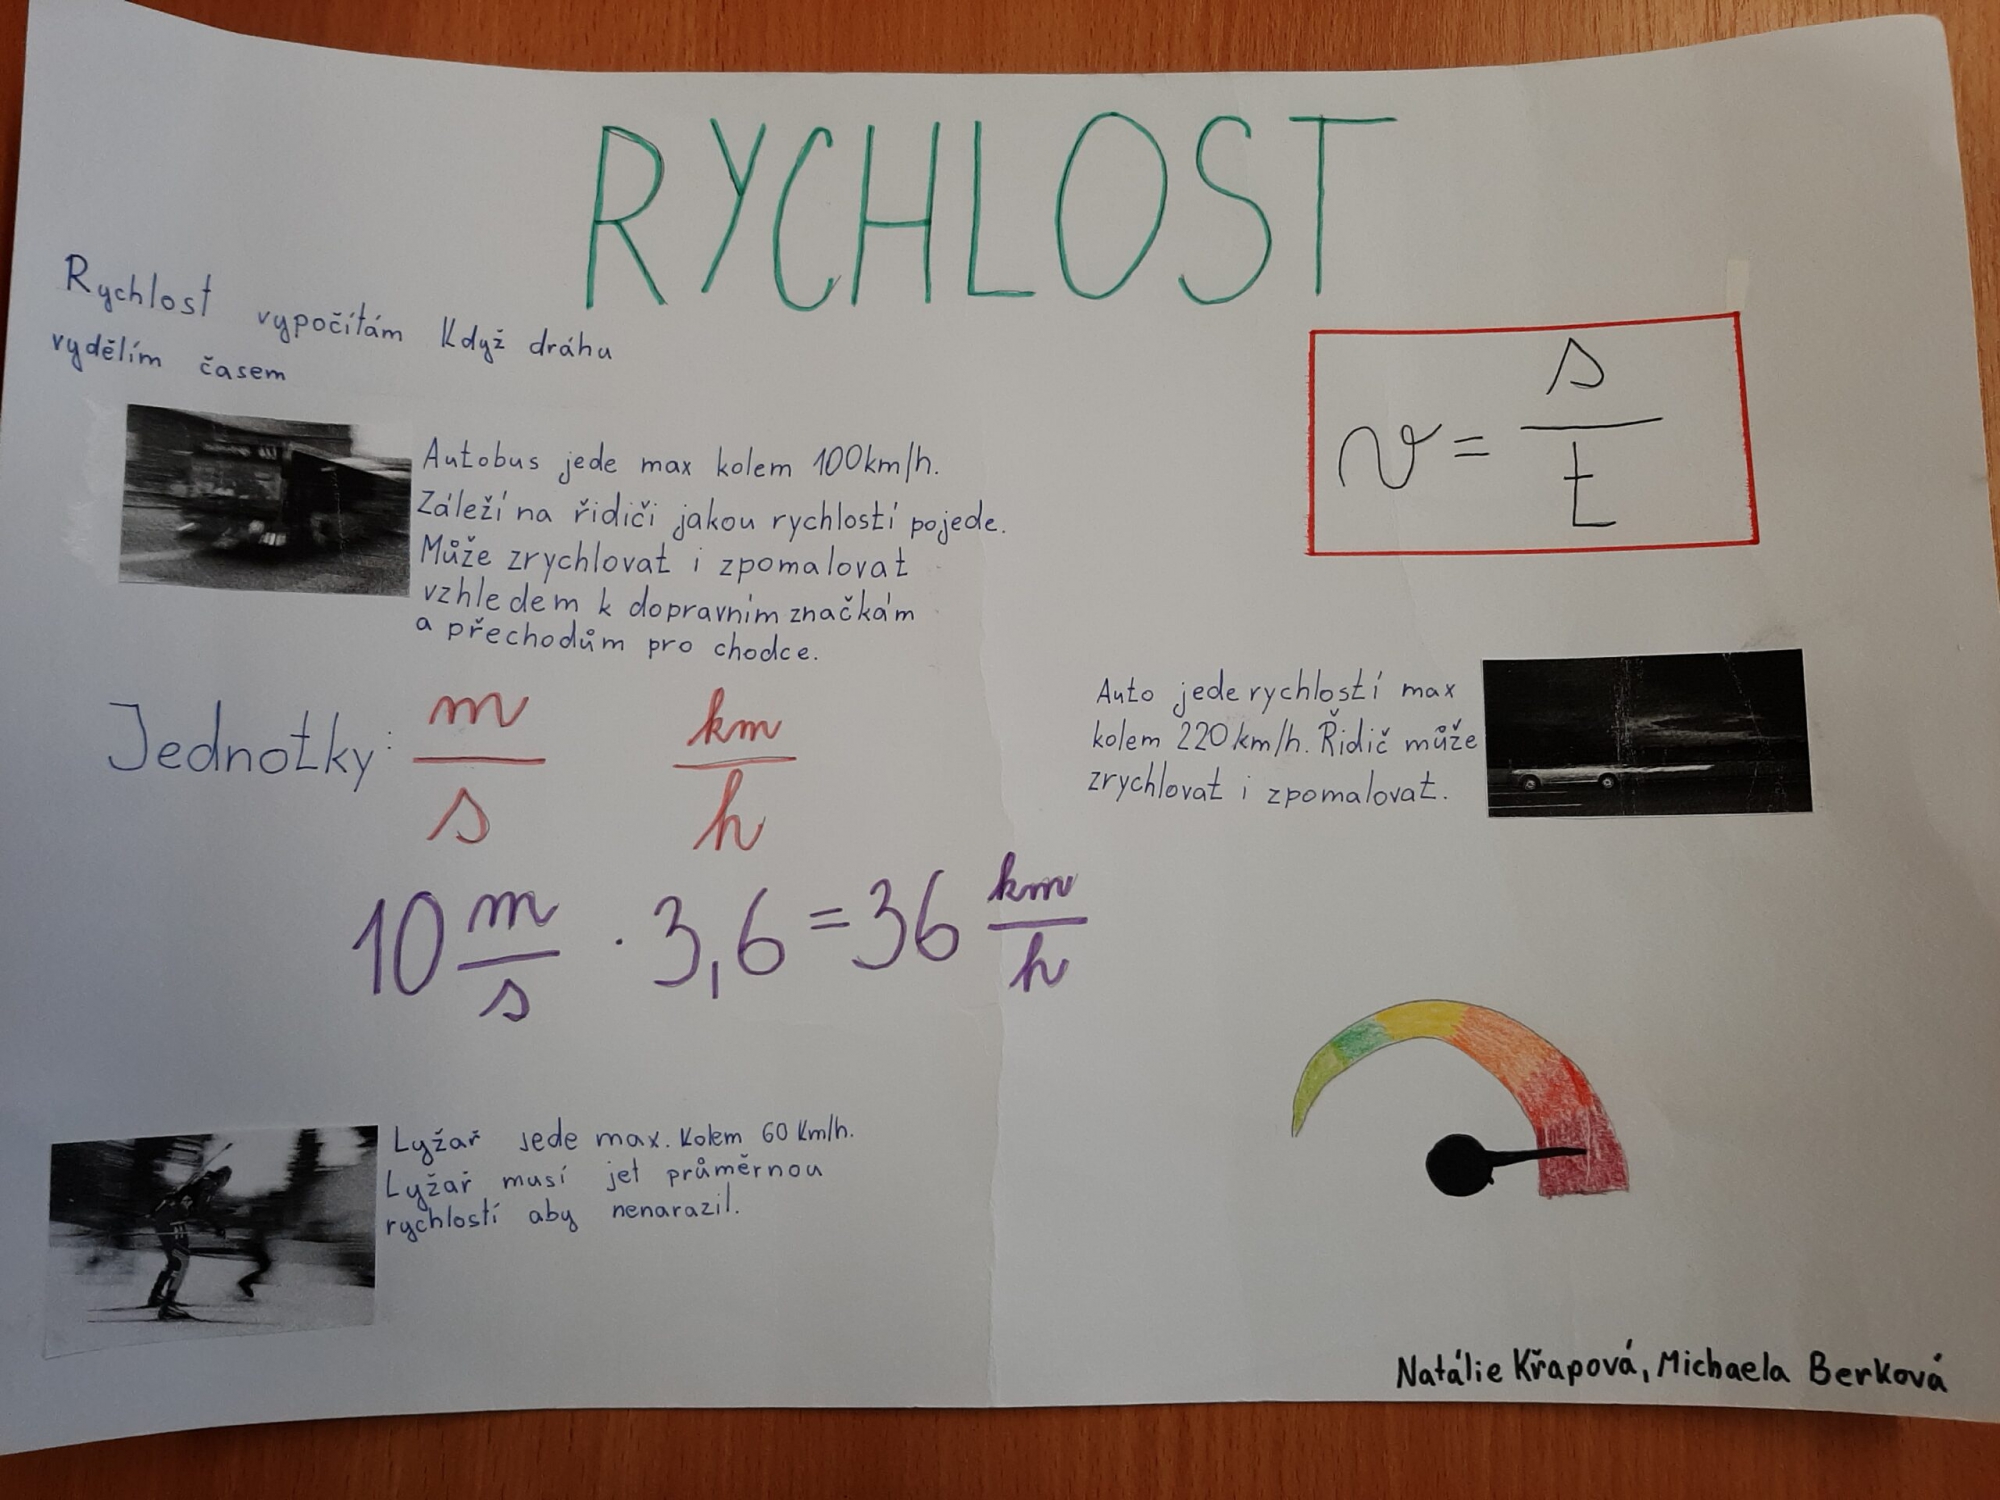 RYCHLOST
Rychlost vypočítám Když dráhu
vydělím časem
v = s/t
Autobus jede max kolem 100km/h.
Záleží na řidiči jakou rychlostí pojede.
Může zrychlovat i zpomalovat
vzhledem k dopravním značkám
a přechodům pro chodce.
Auto jede rychlostí max
kolem 220 km/h. Řidič může
zrychlovat i zpomalovat.
Jednotky: m/s km/h
10 m/s · 3,6 = 36 km/h
Lyžař Jede max. Kolem 60 Km/h.
Lyžař musí jet průměrnou
rychlostí aby nenarazil.
Natálie Křapová, Michaela Berková